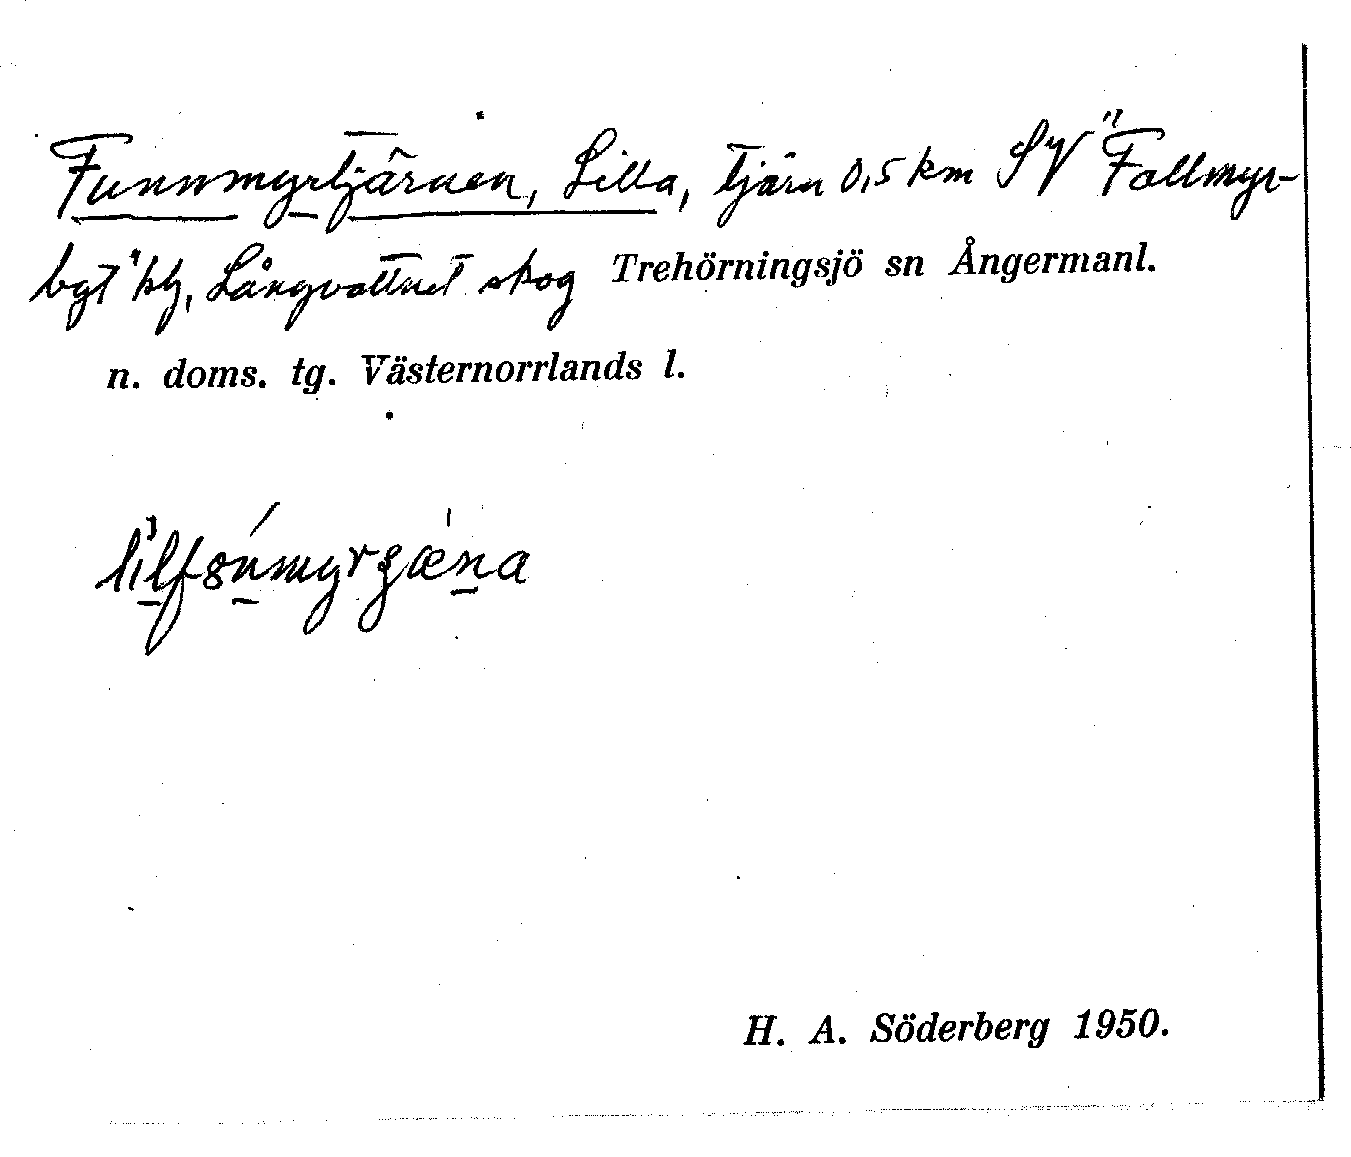 Funnmyrtjärnen, Lilla, tjärn 0,5 km SV "Fallmyr-
bgt" kbg, Långvattnet skog Trehörningsjö sn Ångermanl.
n. doms. tg. Västernorrlands l.
H. A. Söderberg 1950.